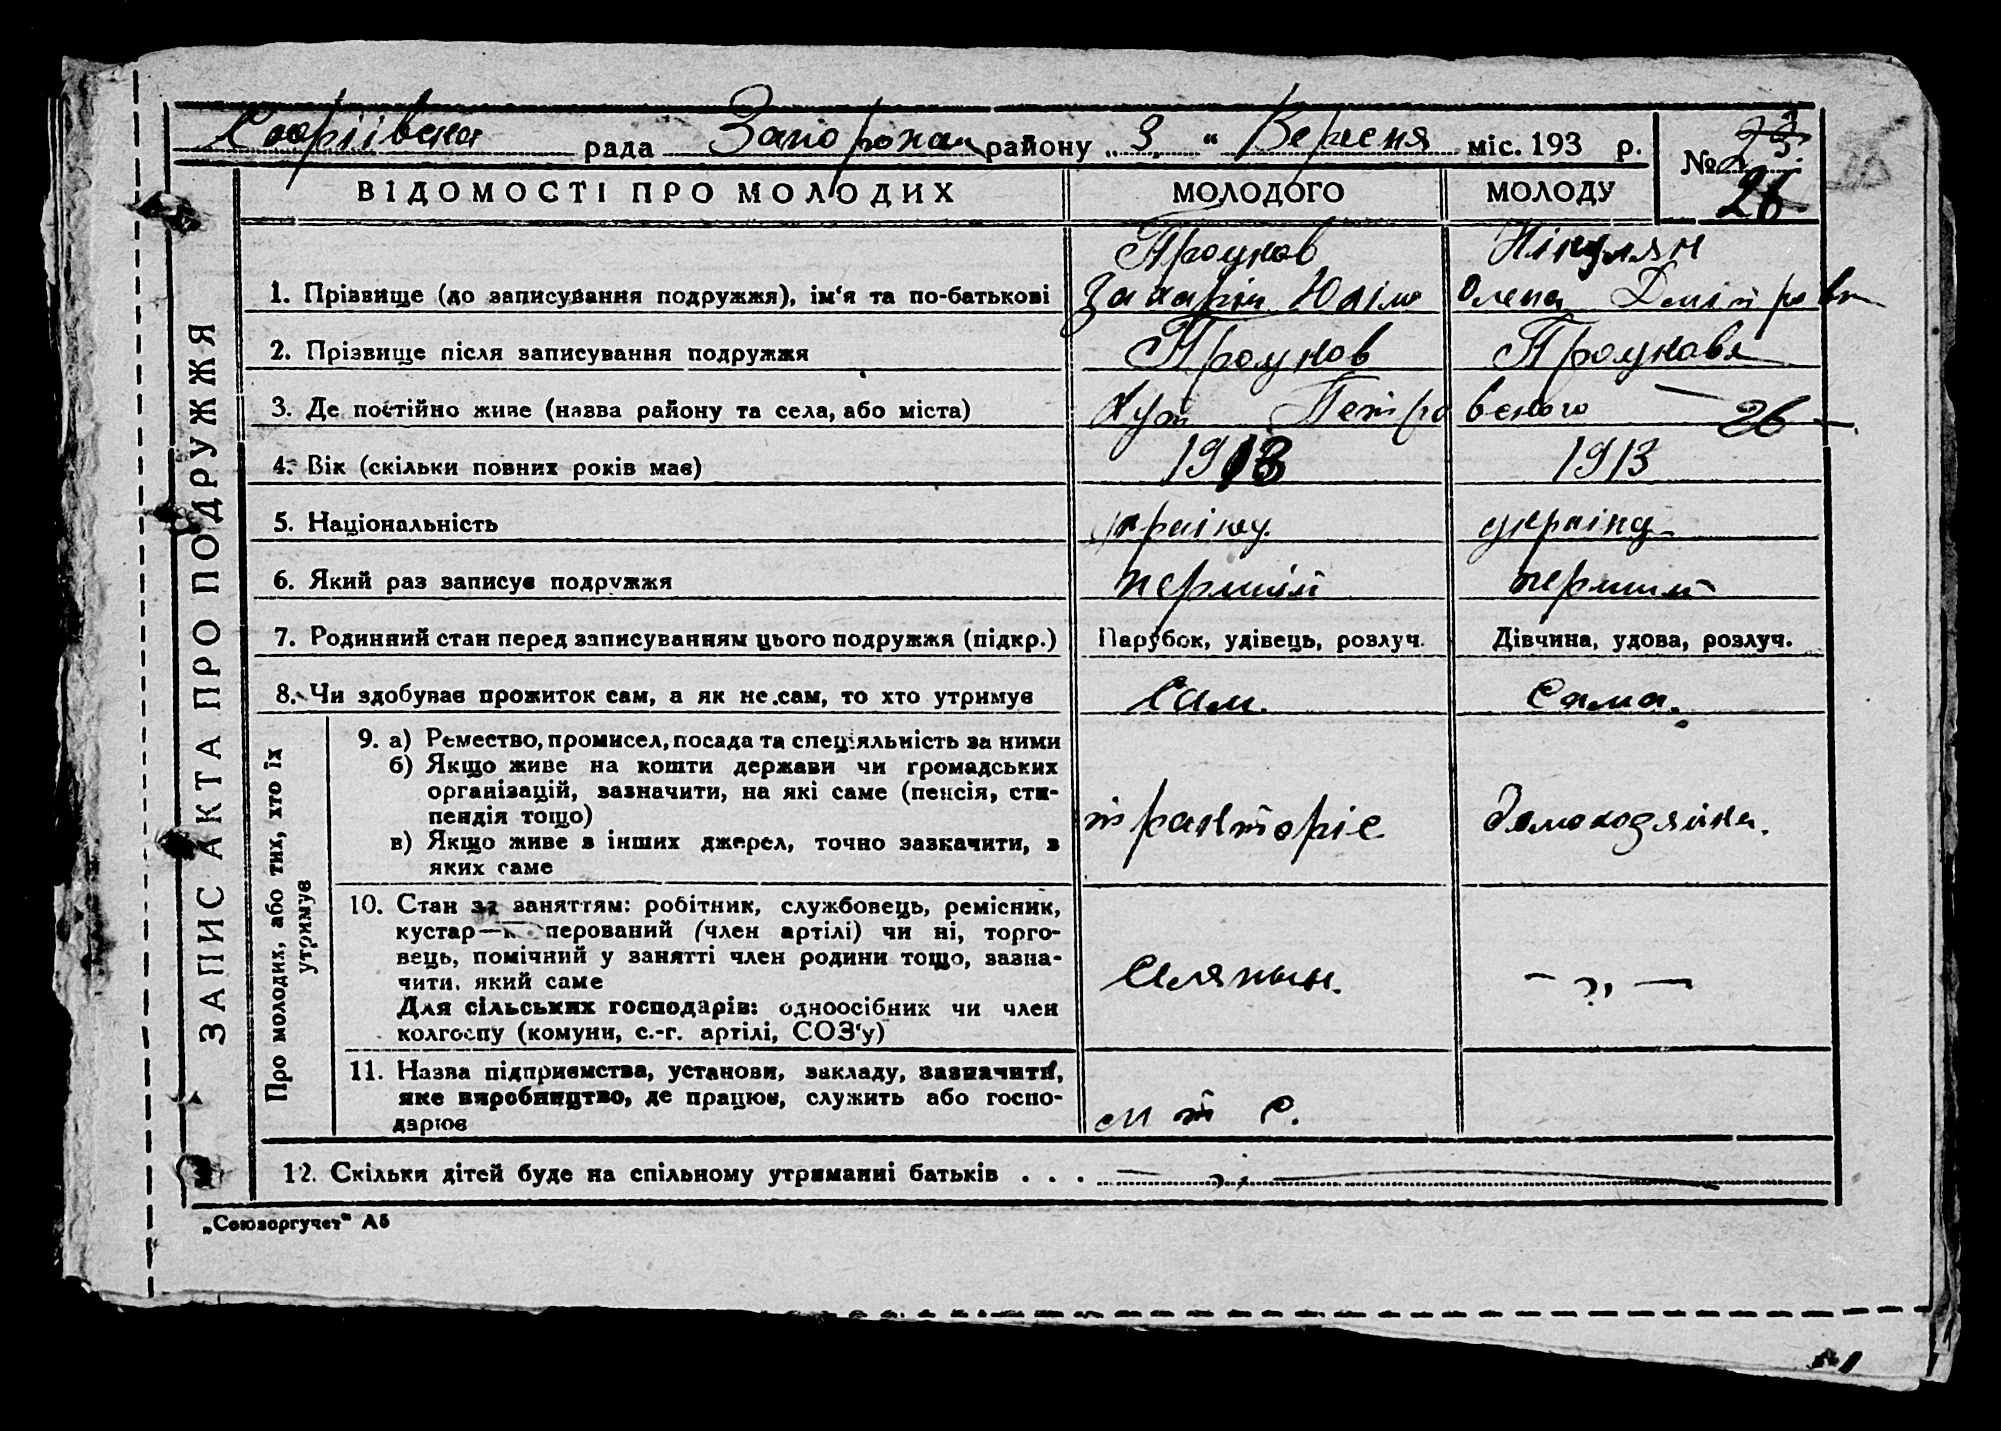 Софіївська рада Запорожськ району „ 3 “ Вересня міс. 193 р.
№ 23
26
ЗАПИС АКТА ПРО ПОДРУЖЖЯ
ВІДОМОСТІ ПРО МОЛОДИХ МОЛОДОГО МОЛОДУ
Троцков
1. Прізвище (до записування подружжя), ім‘я та по-батькові Захарій Юхім Олена Дмітровн
2. Прізвище після записування подружжя Троцков Троцкова
3. Де постійно живе (назва району та села, або міста) Хут Петровского 26
4. Вік (скільки повних років має) 1913 1913
5. Національність україну українц
6. Який раз записує подружжя перший перший
7. Родинний стан перед записуванням цього подружжя (підкр.) Парубок, удівець, розлуч. Дівчина, удова, розлуч.
8. Чи здобуває прожиток сам, а як не сам, то хто утримує Сам. Сама.
Про молодих, або тих, хто їх утримує
9. а) Ремество, промисел, посада та спеціяльність за ними
б) Якщо живе на кошти держави чи громадських
організацій, зазначити, на які саме (пенсія, сти-
пендія тощо)
в) Якщо живе з інших джерел, точно зазначити, з
яких саме
тракторіс домохозяйка.
10. Стан за заняттям: робітник, службовець, ремісник,
кустар—кооперований (член артілі) чи ні, торго-
вець, помічний у занятті член родини тощо, зазна-
чити, який саме
Для сільських господарів: одноосібник чи член
колгоспу (комуни, с.-г. артілі, СОЗ‘у)
Селянын. — „ —
11. Назва підприємства, установи, закладу, зазначити,
яке виробництво, де працює, служить або госпо-
дарює
м т с.
12. Скільки дітей буде на спільному утриманні батьків . . .
„Союзоргучет“ А5